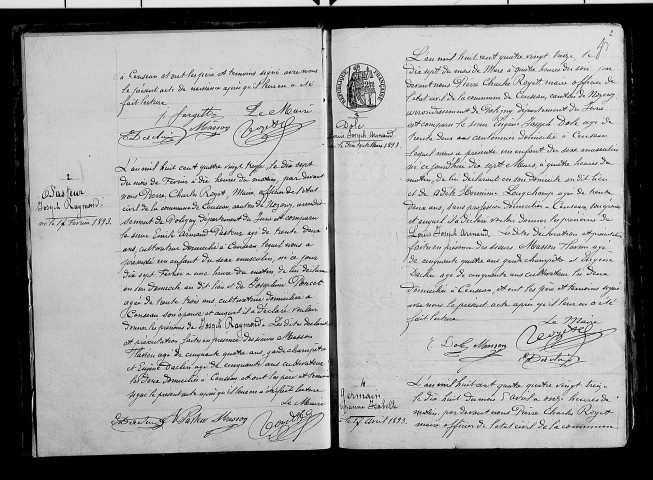 à Censeau et ont les père et témoins signé avec nous
le présent acte de naissance après qu'il leur en a été
fait lecture
Le Maire
Masson
2
Pasteur
Joseph Raymond
né le 17 Février 1893.
L'an mil huit cent quatre vingt treize, le dix sept
du mois de Février à dix heures du matin, par devant
nous Pierre Charles Royet, Maire officier de l'état
civil de la commune de Censeau, canton de Nozeroy, arrondis-
sement de Poligny département du Jura est comparu
le sieur Emile Armand Pasteur, âgé de trente deux
ans, cultivateur domicilié à Censeau lequel nous a
présenté un enfant du sexe masculin, né ce jour
dix sept Février à une heure du matin, de lui déclarant
en son domicile au dit lieu et de Joséphine Poncet
âgée de trente trois ans cultivatrice domiciliée à
Censeau son épouse et auquel il a déclaré vouloir
donner les prénoms de Joseph Raymond. Les dites déclaration
et présentation faites en présence des sieurs Masson
Flavien âgé de cinquante quatre ans, garde champêtre
et Eugène Daclin âgé de cinquante ans cultivateur
les deux domiciliés à Censeau et ont les père et témoins
signé le présent acte après qu'il leur en a été fait lecture
Le Maire
Pasteur Masson
2
RÉPUBLIQUE FRANÇAISE
3
Dole
Louis Joseph Armand
né le dix sept Mars 1893.
L'an mil huit cent quatre vingt treize le
dix sept du mois de Mars à quatre heures du soir par
devant nous Pierre Charles Royet maire officier de
l'état civil de la commune de Censeau, canton de Nozeroy
arrondissement de Poligny département du Jura
est comparu le sieur Joseph Dole âgé de
trente deux ans domicilié à Censeau
lequel nous a présenté un enfant du sexe masculin
né ce jourd'hui dix sept Mars à quatre heures du
matin, de lui déclarant en son domicile au dit lieu
et de Adèle Herminie Longchamp âgée de trente
deux ans, sans profession domiciliée à Censeau son épouse
et auquel il a déclaré vouloir donner les prénoms de
Louis Joseph Armand. Les dites déclaration et présentation
faites en présence des sieurs Masson Flavien âgé
de cinquante quatre ans garde champêtre et Eugène
Daclin âgé de cinquante ans cultivateur les deux
domiciliés à Censeau, et ont les père et témoins signé
avec nous le présent acte après qu'il leur en a été
fait lecture
Le Maire
Dole Masson
4
Germain
né le 18 Avril 1893.
L'an mil huit cent quatre vingt treize
le dix huit du mois d'Avril à onze heures du
matin, par devant nous Pierre Charles Royet
maire officier de l'état civil de la commune